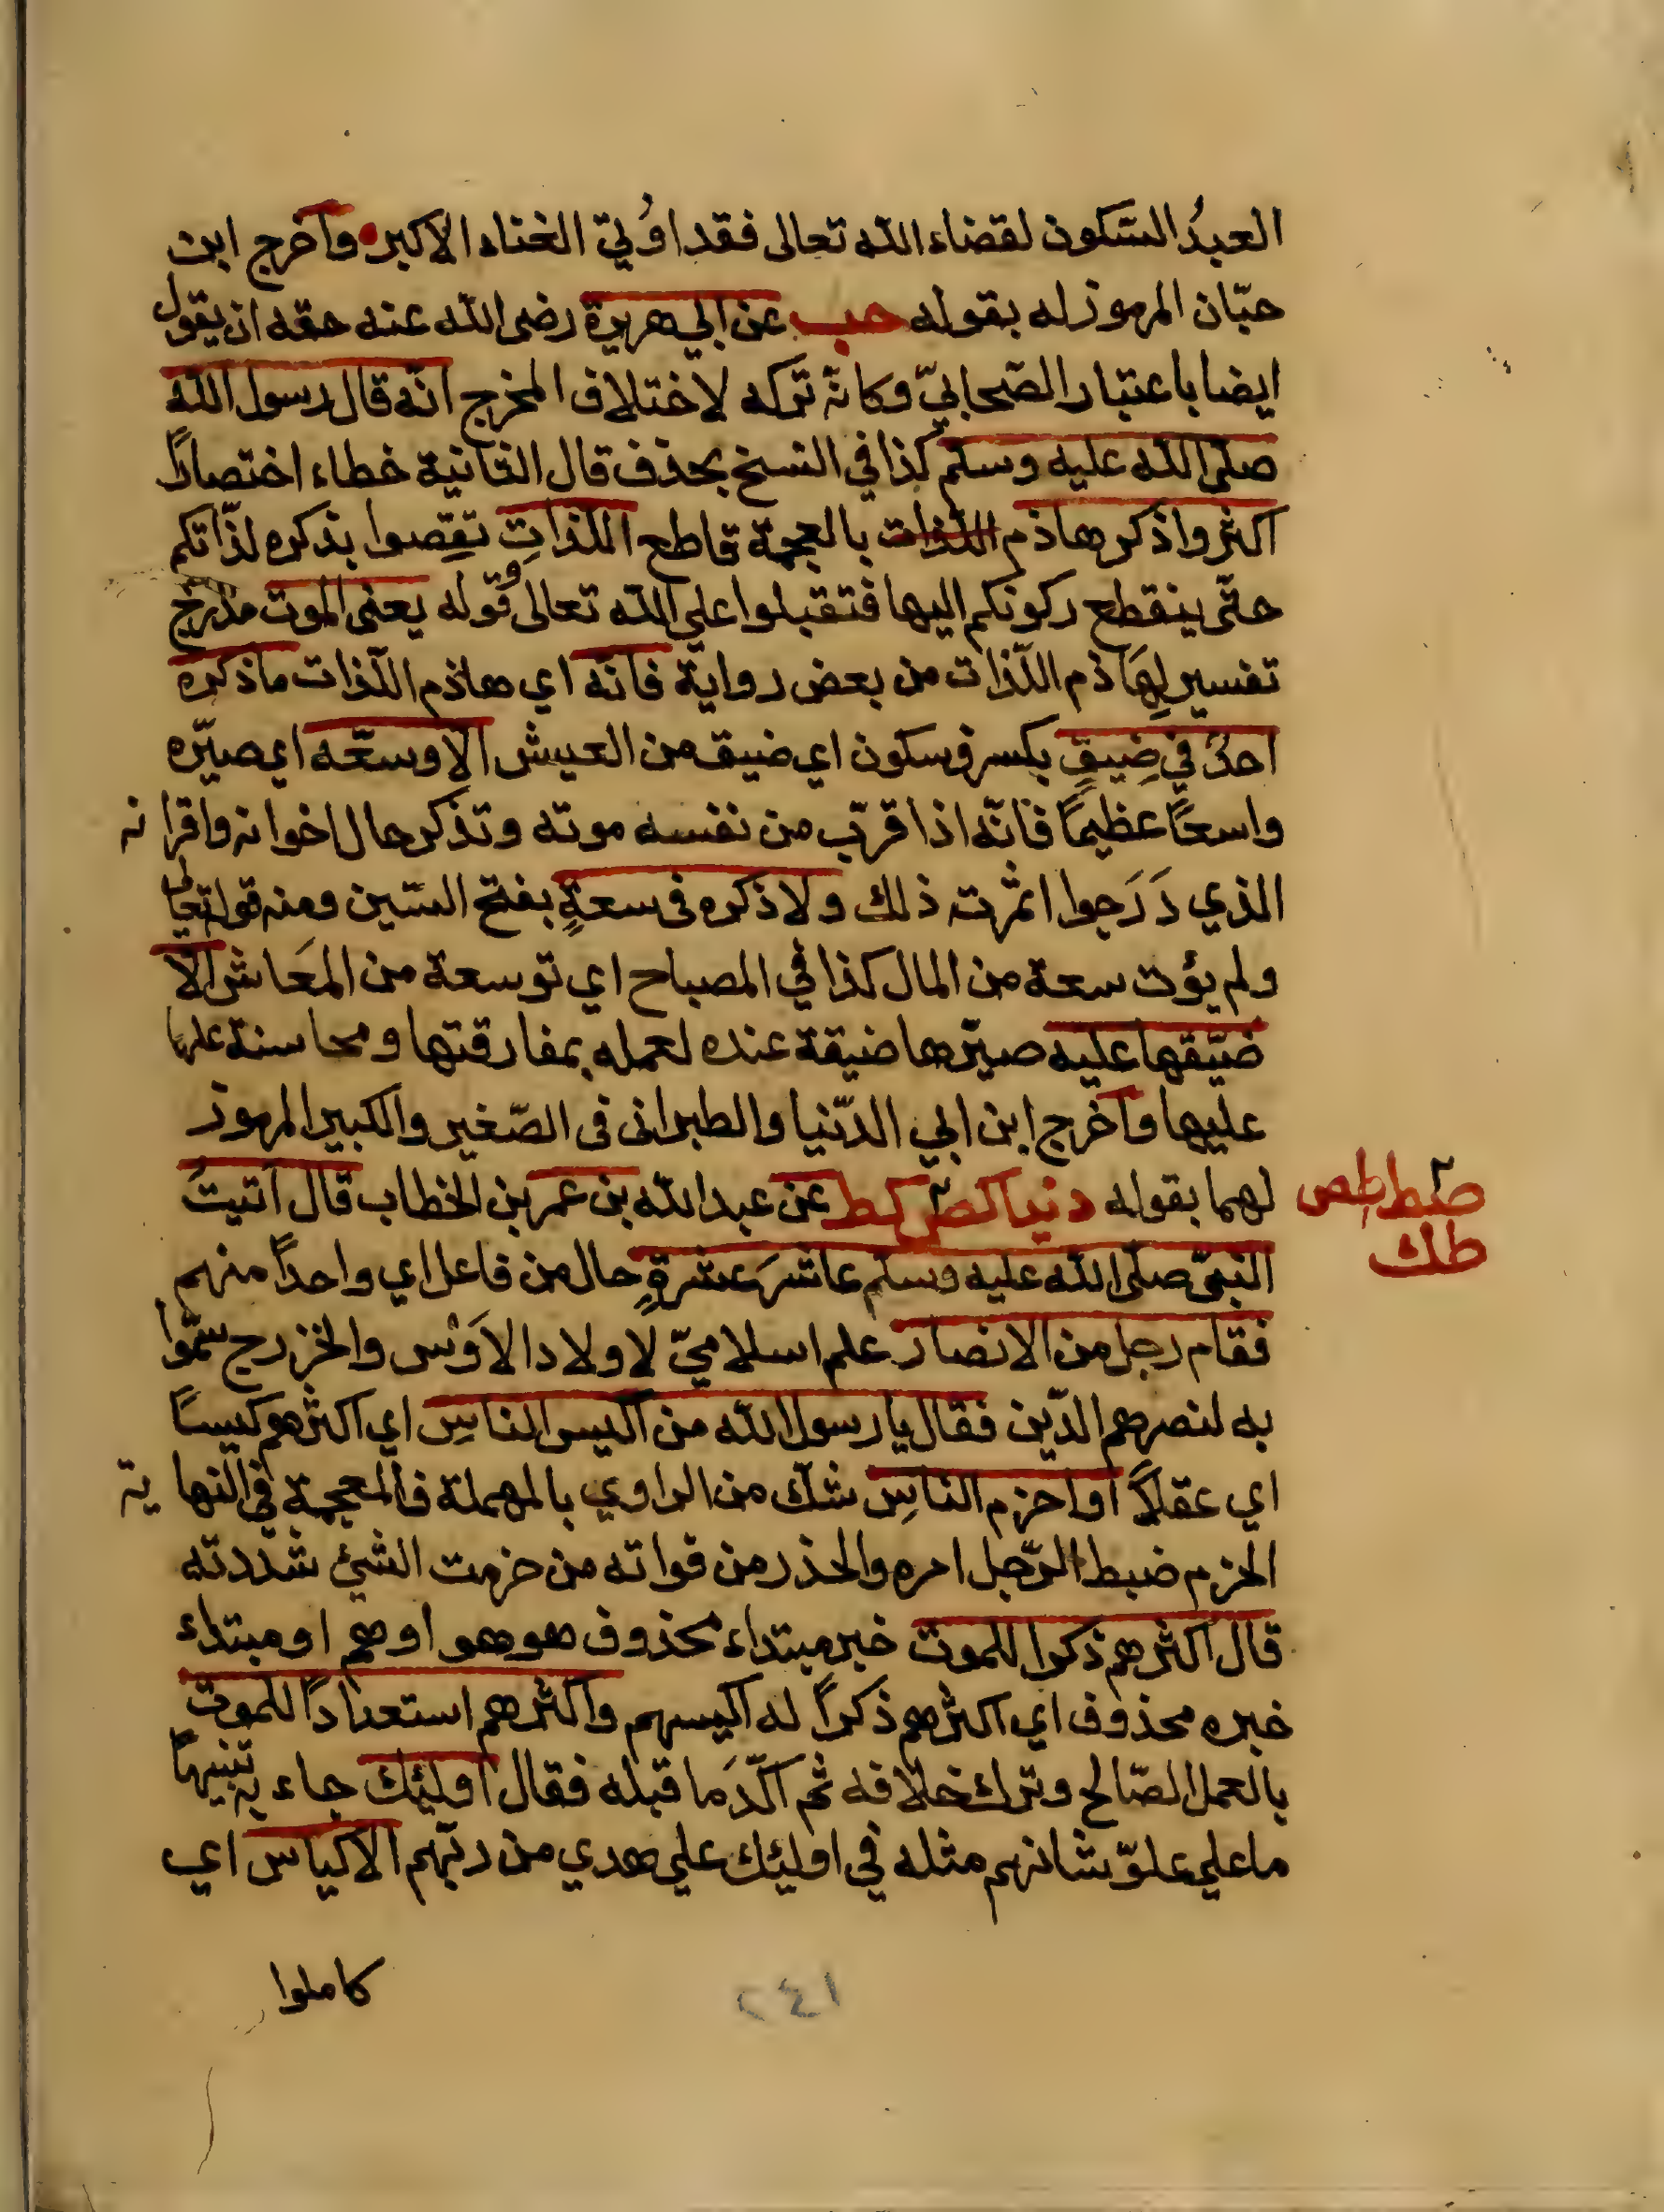 العبدُ السّكون لقضاء الله تعالى فقد اُوليّ الغناء الاكبر واخرج ابن
حبّان المرموز له بقوله حب عن ابي هريرة رضى الله عنه حقه ان يقول
ايضا باعتبار الصّحابيّ وكانّه تركه لاختلاف المخرج انّه قال رسول الله
صلى الله عليه وسلم كذا في النسخ بحذف قال الثانية خطاء اختصارًا
اكثروا ذكر هاذم اللذات بالعجمة قاطع اللذاتِ نقِصوا بذكره لذّاتكم
حتّى ينقطع ركونكم اليها فتقبلوا على الله تعالى وقوله يعنى الموت مدرج
تفسير لِهَاذم اللّذات من بعض رواية فانّه اي هاذم اللّذات ما ذكره
احدٌ في ضِيقٍ بكسر وسكون اي ضيق من العيش الا وسعّه اي صيّره
واسعًا عظيمًا فانّه اذا قرّب من نفسه موته وتذكر حال اخوانه واقرانه
الذي دَرَجوا اثمرت ذلك ولا ذكره فى سعةٍ بفتح السّين ومنه قوله تعالى
ولم يؤت سعة من المال كذا في المصباح اي توسعة من المعَاش الّا
ضيّقها عليه صيّرها ضيقة عنده لعمله بمفارقتها ومحاسنة عليها
عليها واخرج ابن ابي الدّنيا والطبرانى فى الصّغير والكبير المرموز
لهما بقوله دنيا كص كط عن عبد الله بن عمر بن الخطاب قال اتيتُ
صط طص
طك
النبيّ صلى الله عليه وسلم عاشرَ عشرةٍ حال من فاعل اي واحدًا منهم
فقام رجل من الانصار علم اسلاميّ لاولاد الاَوْس والخزرج سمّوا
به لنصرهم الدّين فقال يا رسول الله من اكيس الناسِ اي اكثرهم كيسًا
اي عقلًا او احزم الناسِ شك من الراوي بالمهملة فالمعجمة في النهاية
الحزم ضبط الرّجل امره والحذر من فواته من حزمت الشئ شددته
قال اكثرهم ذكرا للموت خبر مبتداء محذوف هو هو او هم او مبتداء
خبره محذوف اي اكثرهم ذكرًا له اكيسهم واكثرهم استعدادًا للموت
بالعمل الصّالح وترك خلافه ثم اكّدَ ما قبله فقال اوليٰك جاء به تنبيهًا
ما على علوّ شانهم مثله في اوليٰك على هدي من ربّهم الاكياس اي
كاملوا
٢٤١